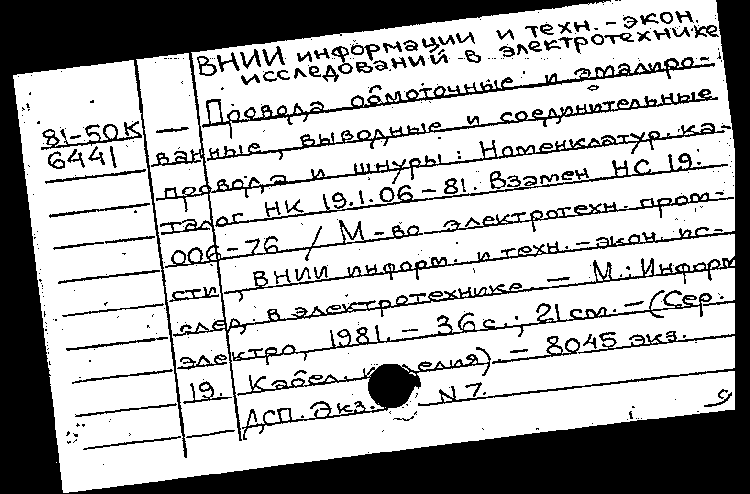 ВНИИ информации и техн.-экон.
исследований в электротехнике
81-50К
6441
— Провода обмоточные и эмалиро-
ванные, выводные и соединительные
провода и шнуры: Номенклатур. ка-
талог НК 19.1.06-81. Взамен НС 19.
006-76 / М-во электротехн. пром-
сти, ВНИИ информ. и техн.-экон. ис-
след. в электротехнике. — М.: Информ
электро, 1981. — 36 с.; 21 см. — (Сер.
19. Кабел. и делия). — 8045 экз.
ДСП. Экз. N 7.